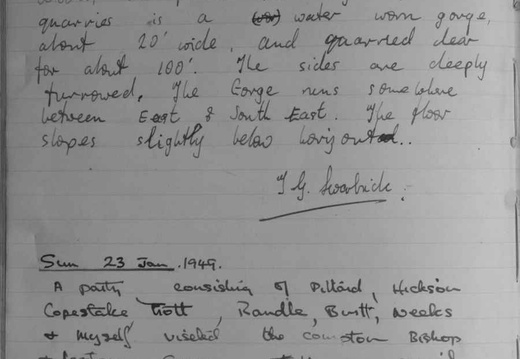 quarries is a water worn gorge,
about 20' wide, and quarried clear
for about 100'. The sides are deeply
furrowed. The Gorge runs somewhere
between East & South East. The floor
slopes slightly below horizontal..
Sun 23 Jan. 1949.
A party consisting of Pillard, Hickson
Copestake Trott, Randle, Butt, Weeks
& myself visited the Compton Bishop